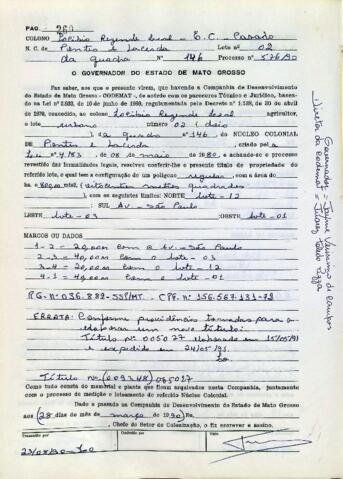 PAG. 260
COLONO Potibio Rezende Leal - E.C. Casado
N. C. de Pontes e Lacerda Lote nº 02
da quadra Nº 146 Processo nº 576/90
O GOVERNADOR DO ESTADO DE MATO GROSSO
Faz saber, aos que o presente virem, que havendo a Companhia de Desenvolvimento
do Estado de Mato Grosso - CODEMAT -, de acordo com os pareceres Técnico e Jurídico, basea-
do na Lei nº 3.933, de 10 de junho de 1969, regulamentada pelo Decreto nº 1.138, de 30 de abril
de 1970, concedido, ao colono Rezende Leal agricultor,
o lote urbano número 02 (dois)
da quadra nº 146, do NÚCLEO COLONIAL
DE Pontes e Lacerda, criado pela
Lei 4.153 de 08 de maio de 1980, e achando-se o processo
revestido das formalidades legais, resolveu conferir-lhe o presente título de propriedade do
referido lote, o qual tem a configuração de um polígono regular, com a área de
ha 800m² (oitocentos metros quadrados)
), com os seguintes limites: NORTE lote-12
: SUL Av. São Paulo
LESTE lote-03 :OESTE lote-01
MARCOS OU DADOS
1-2 = 20,00m com a Av. São Paulo
2-3 = 40,00m com o lote-03
3-4 = 20,00m com o lote-12
4-1 = 40,00m com o lote-01
RG. Nº 036.882-SSP/MT. CPF. Nº 156.567.131-72
ERRATA: Conforme providências tomadas para
elaborar um novo título:
Título nº 005027 elaborado em 15/05/91
e expedido em 24/05/91.
Título nº (009348) 005027
Como tudo consta do memorial e planta que ficam arquivados nesta Companhia, juntamente
com o processo de medição e loteamento do referido Núcleo Colonial.
Dado e passado na Companhia de Desenvolvimento do Estado de Mato Grosso
aos (28 dias do mês de março de 1990) Eu,
, Chefe do Setor de Colonização, o fiz escrever e assino.
Transcrito por
Conferido por
Visto
23/08/90
Governador - Jayme Veríssimo de Campos
Diretor da Codemat -